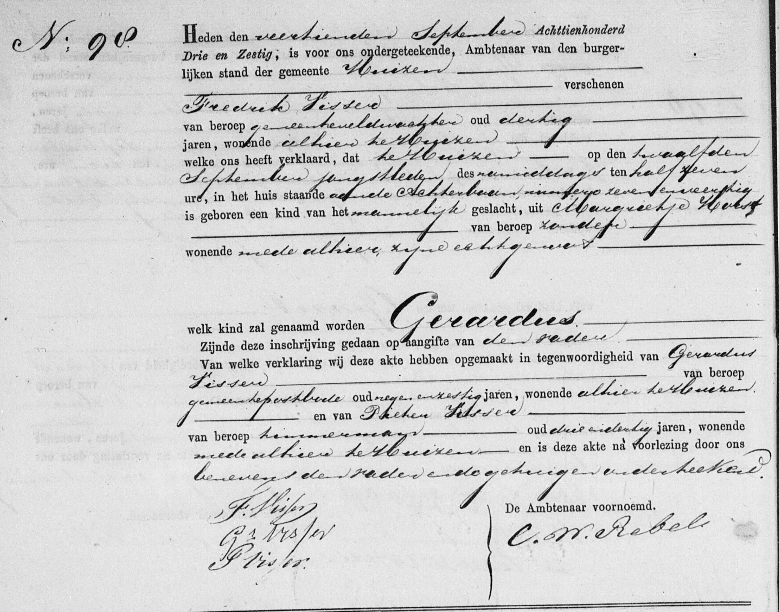 N: 98.
Heden den veertienden September Achttienhonderd
Drie en Zestig, is voor ons ondergeteekende, Ambtenaar van den burger-
lijken stand der gemeente Huizen
verschenen
Fredrik Visser
van beroep gemeenteveldwachter oud dertig
jaren, wonende alhier te Huizen
welke ons heeft verklaard, dat te Huizen op den twaalfden
September jongstleden, des namiddags ten half zeven
ure, in het huis staande aan de Achterbaan, nummero zeven en veertig
is geboren een kind van het mannelijk geslacht, uit Margrietje
van beroep zonder
wonende mede alhier, zijne echtgenoot
welk kind zal genaamd worden Gerardus.
Zijnde deze inschrijving gedaan op aangifte van den vader
Van welke verklaring wij deze akte hebben opgemaakt in tegenwoordigheid van Gerardus
Visser van beroep
gemeentepostbode oud negen en zestig jaren, wonende alhier te Huizen.
en van Pieter Visser
van beroep timmerman oud drie en dertig jaren, wonende
mede alhier te Huizen en is deze akte na voorlezing door ons
benevens den vader en de getuigen onderteekend.
F. Visser
Gs Visser
P Visser.
De Ambtenaar voornoemd.
C. W. Rebels